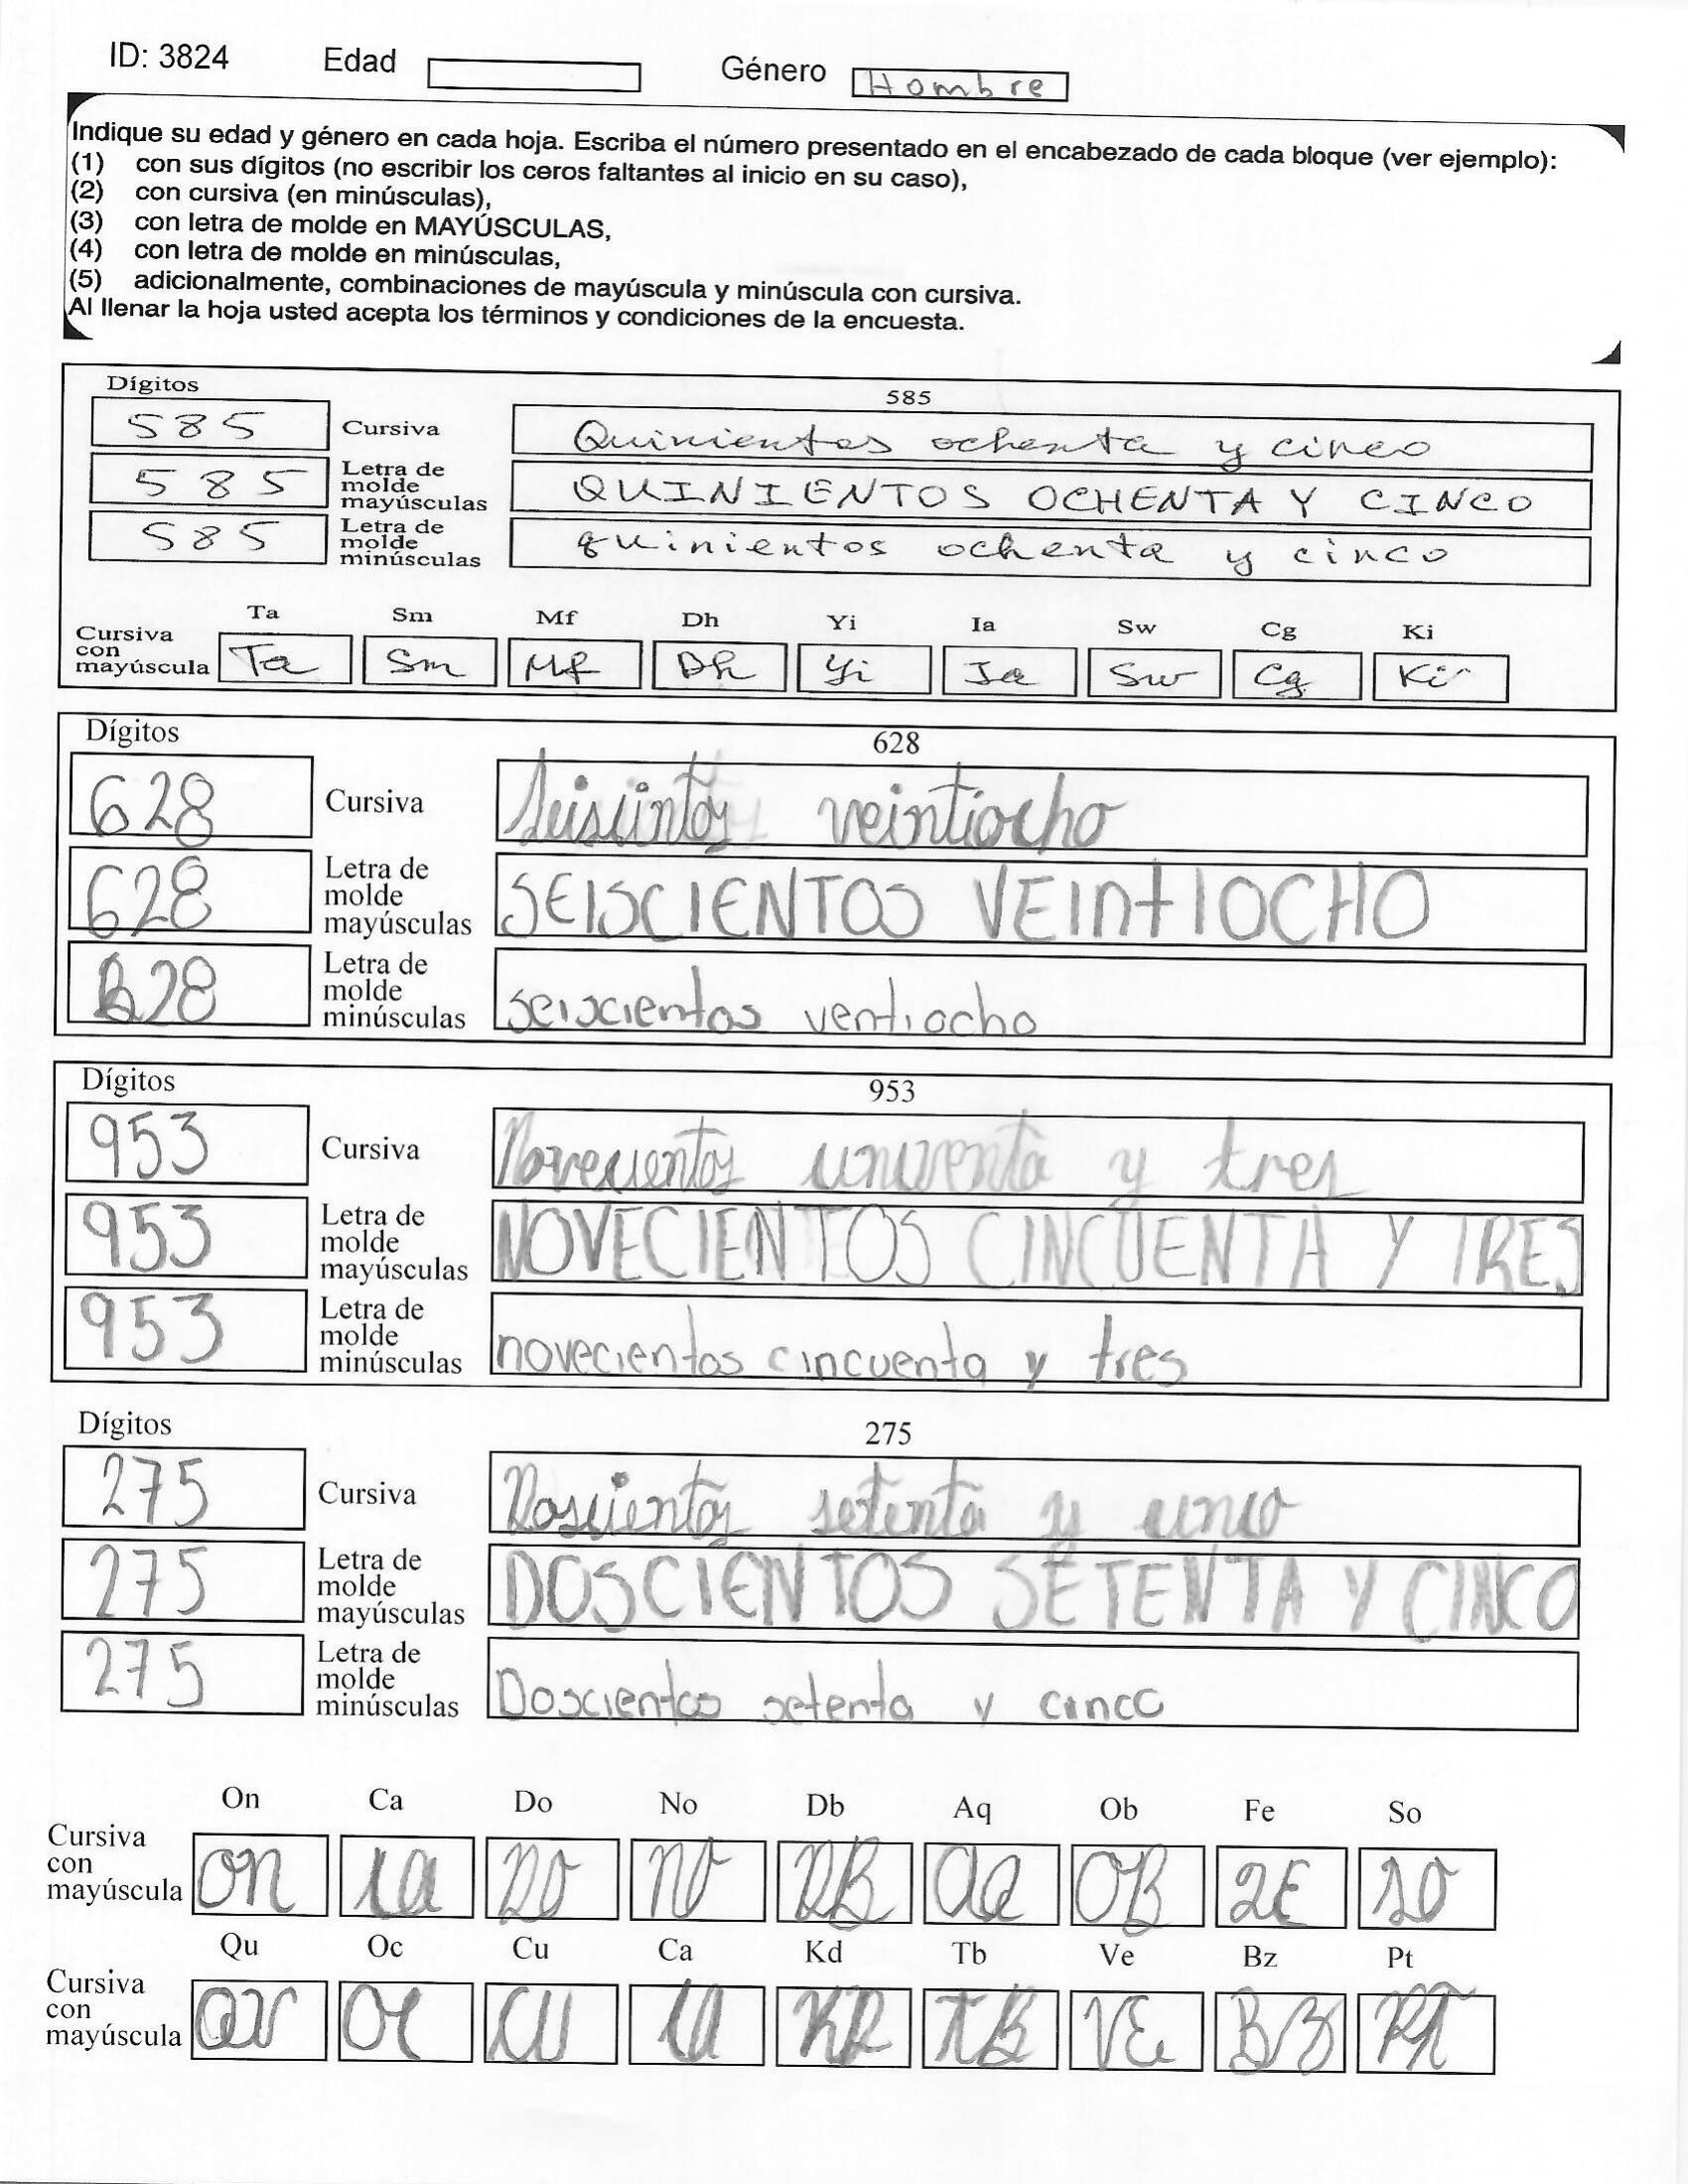 ID: 3824 Edad Género Hombre
Indique su edad y género en cada hoja. Escriba el número presentado en el encabezado de cada bloque (ver ejemplo):
(1) con sus dígitos (no escribir los ceros faltantes al inicio en su caso),
(2) con cursiva (en minúsculas),
(3) con letra de molde en MAYÚSCULAS,
(4) con letra de molde en minúsculas,
(5) adicionalmente, combinaciones de mayúscula y minúscula con cursiva.
Al llenar la hoja usted acepta los términos y condiciones de la encuesta.
Dígitos 585
585 Cursiva Quinientos ochenta y cinco
585 Letra de molde mayúsculas QUINIENTOS OCHENTA Y CINCO
585 Letra de molde minúsculas quinientos ochenta y cinco
Ta Sm Mf Dh Yi Ia Sw Cg Ki
Cursiva con mayúscula Ta Sm Mf Dh Yi Ia Sw Cg Ki
Dígitos 628
628 Cursiva veintiocho
628 Letra de molde mayúsculas SEISCIENTOS VEIntIOCHO
628 Letra de molde minúsculas seiscientos ventiocho
Dígitos 953
953 Cursiva Novecientos y tres
953 Letra de molde mayúsculas NOVECIENTOS CINCUENTA Y TRES
953 Letra de molde minúsculas novecientos cincuenta y tres
Dígitos 275
275 Cursiva Doscientos setenta y cinco
275 Letra de molde mayúsculas DOSCIENTOS SETENTA Y CINCO
275 Letra de molde minúsculas Doscientos setenta y cinco
On Ca Do No Db Aq Ob Fe So
Cursiva con mayúscula On Ca DO NO DB OB SO
Qu Oc Cu Ca Kd Tb Ve Bz Pt
Cursiva con mayúscula QU OC CU Ca KD TB VE BZ PT